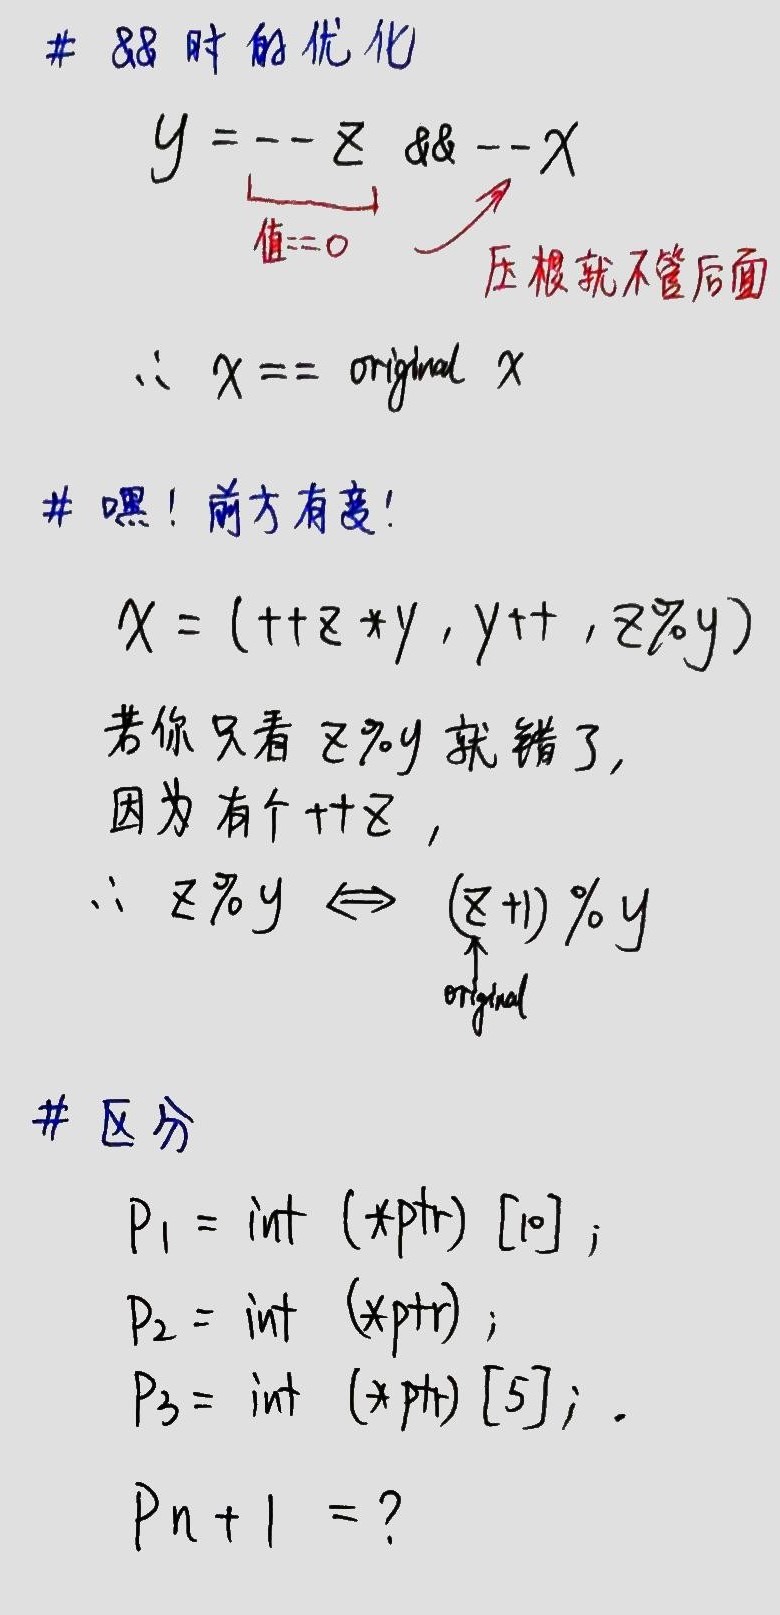 # && 时的优化
y = -- z && -- x
值==0
压根就不管后面
∴ x == original x
# 嘿！前方有变！
x = (++z * y , y++ , z%y)
若你只看 z%y 就错了,
因为有个++z ,
∴ z%y ⇔ (z+1) % y
↑
original
# 区分
P1 = int (*ptr) [10] ;
P2 = int (*ptr) ;
P3 = int (*ptr) [5] ; .
Pn + 1 = ?